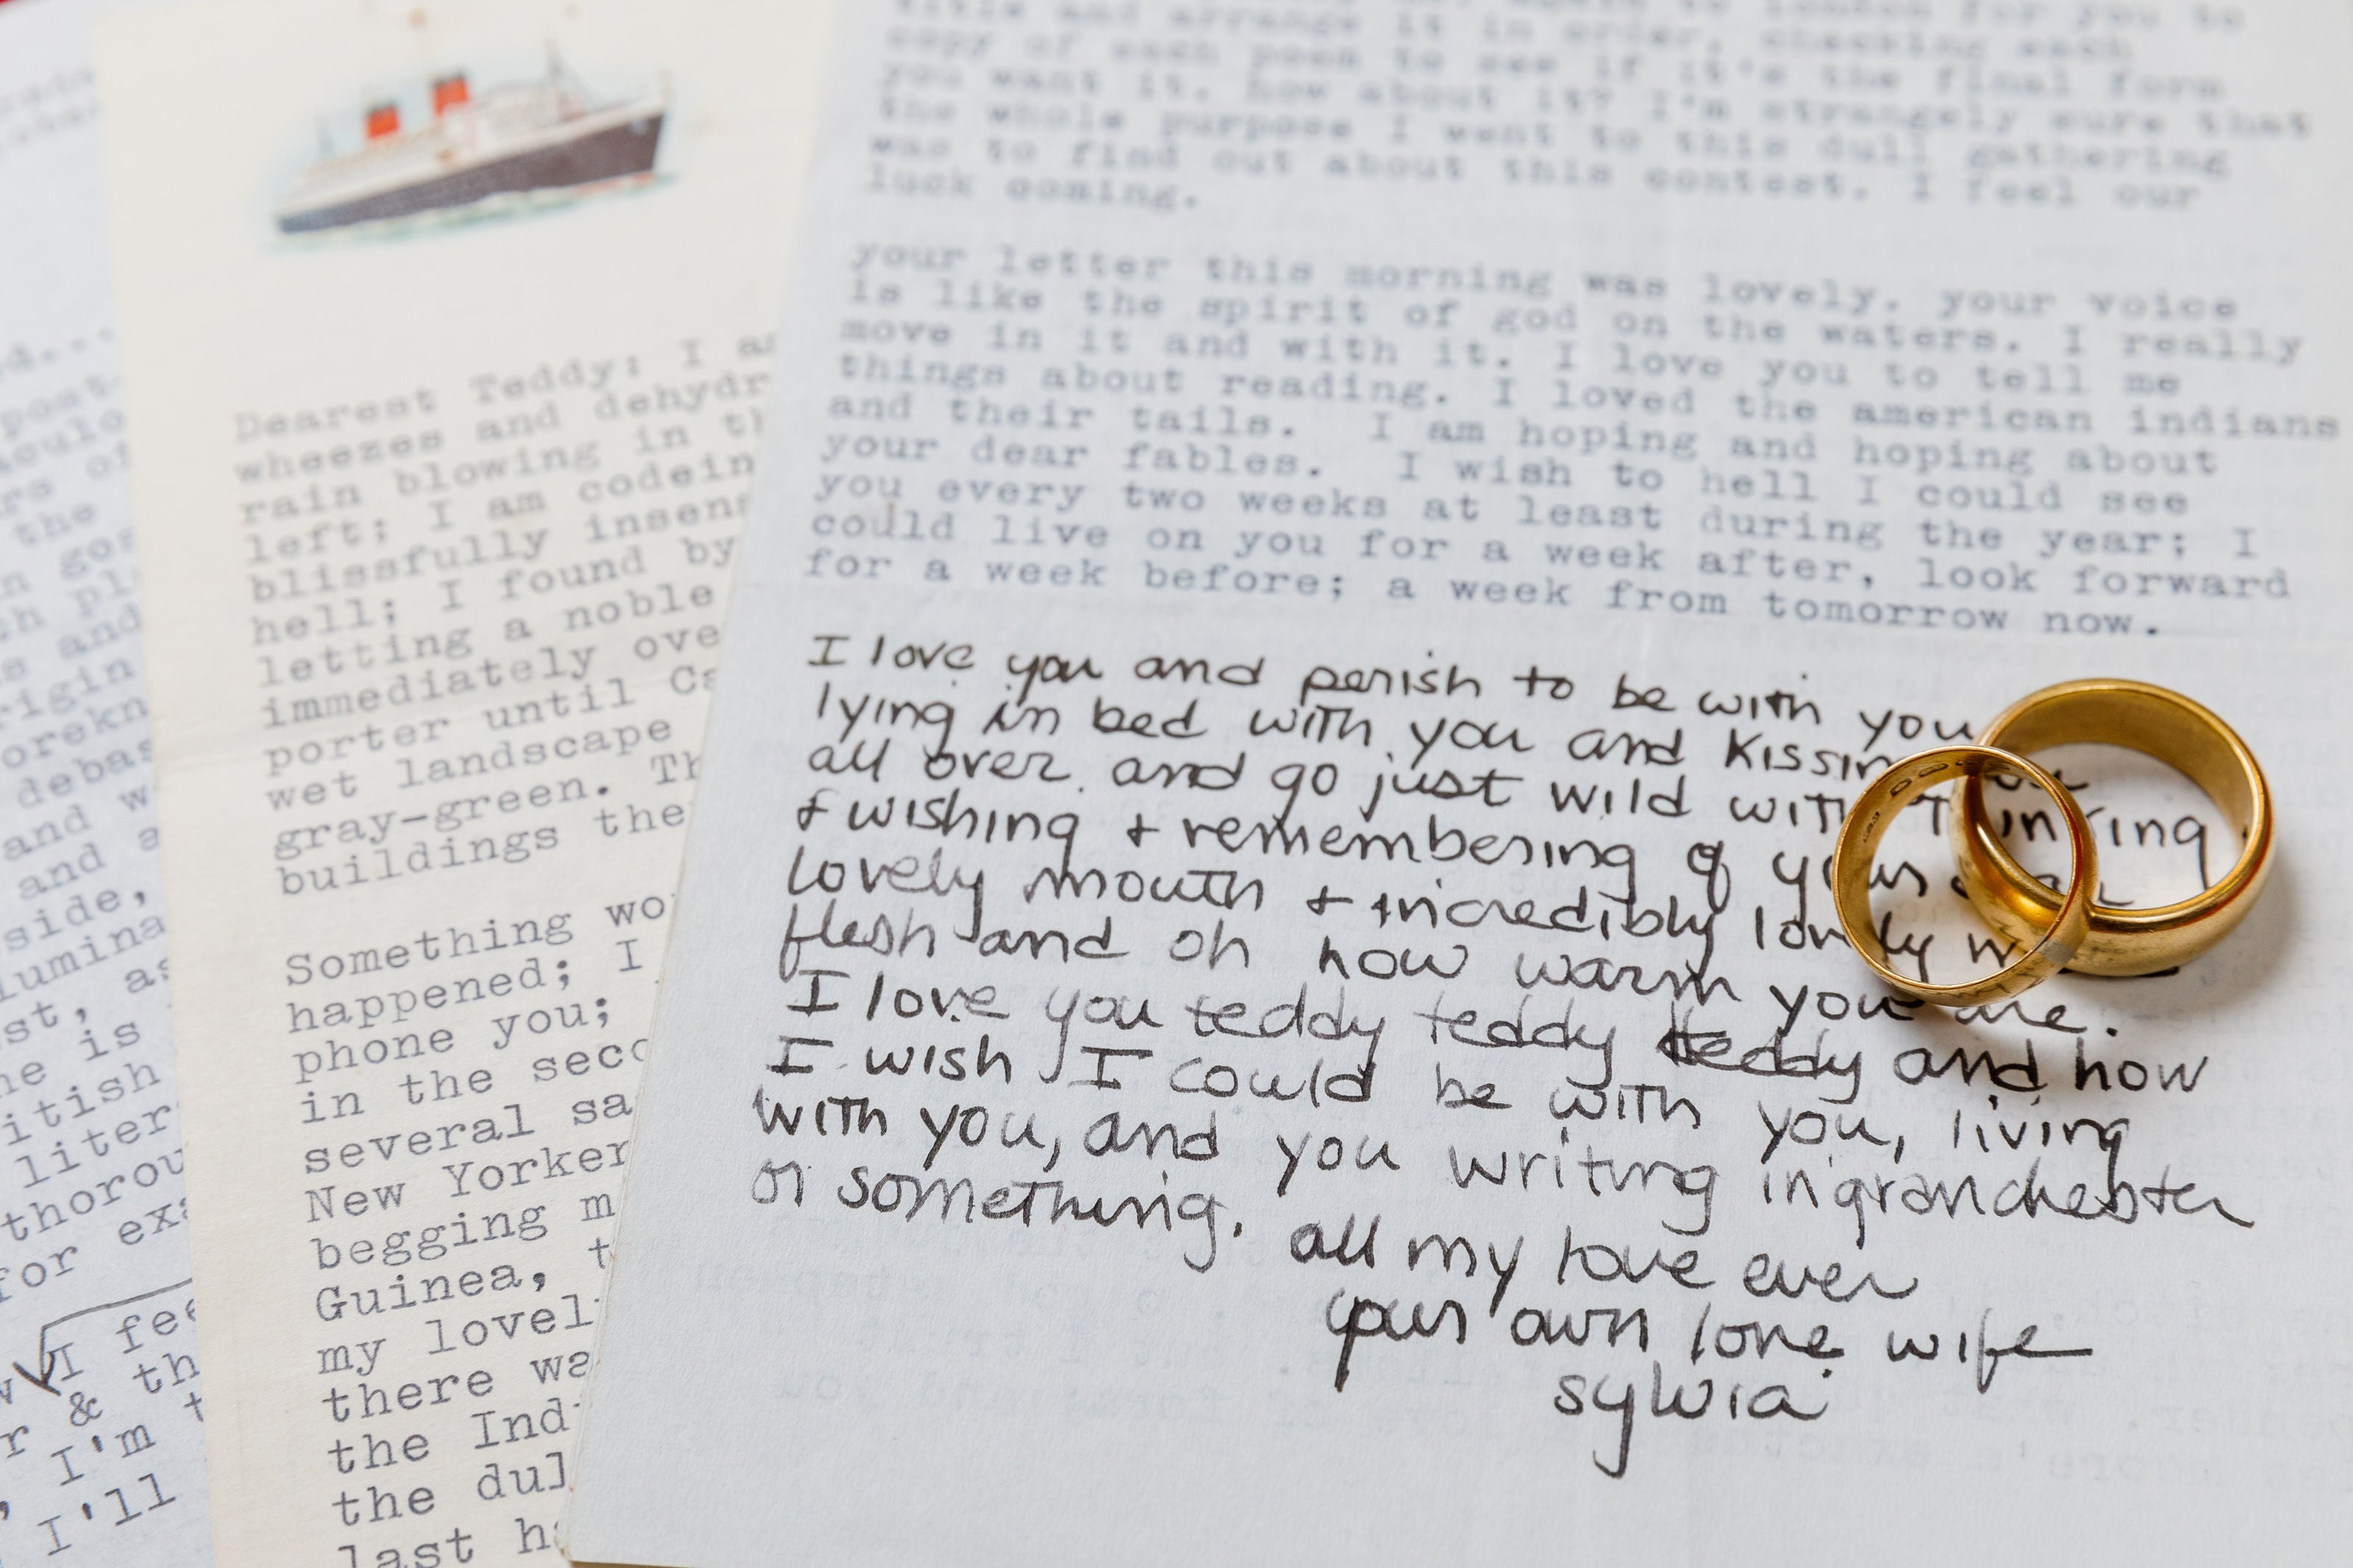 title and arrange it in order, checking each
copy of each poem to see if it's the final form
you want it. how about it? I'm strangely sure that
the whole purpose I went to this dull gathering
was to find out about this contest. I feel our
luck coming.
your letter this morning was lovely. your voice
is like the spirit of god on the waters. I really
move in it and with it. I love you to tell me
things about reading. I loved the american indians
and their tails. I am hoping and hoping about
your dear fables. I wish to hell I could see
you every two weeks at least during the year; I
could live on you for a week after, look forward
for a week before; a week from tomorrow now.
I love you and perish to be with you
lying in bed with you and kissin
all over and go just wild with
+ wishing + remembering of your
lovely mouth + incredibly lovely
flesh and oh how warm you are.
I love you teddy teddy teddy and how
I wish I could be with you, living
with you, and you writing in granchester
or something. all my love ever
your own love wife
sylvia
Dearest Teddy: I a
wheezes and dehydr
rain blowing in th
left; I am codein
blissfully insens
hell; I found by
letting a noble
immediately ove
porter until Ca
wet landscape
gray-green. Th
buildings the
Something wo
happened; I
phone you;
in the seco
several sa
New Yorker
begging m
Guinea, t
my lovel
there wa
the Ind
the dul
last h
d...
post-
aculo
rs of
the
n gos
th pl
s and
rigin
orekn
debas
and w
and a
side,
lumina
st, as
ne is
itish
liter
thorou
for exa
I fee
r & th
I'm t
I'll